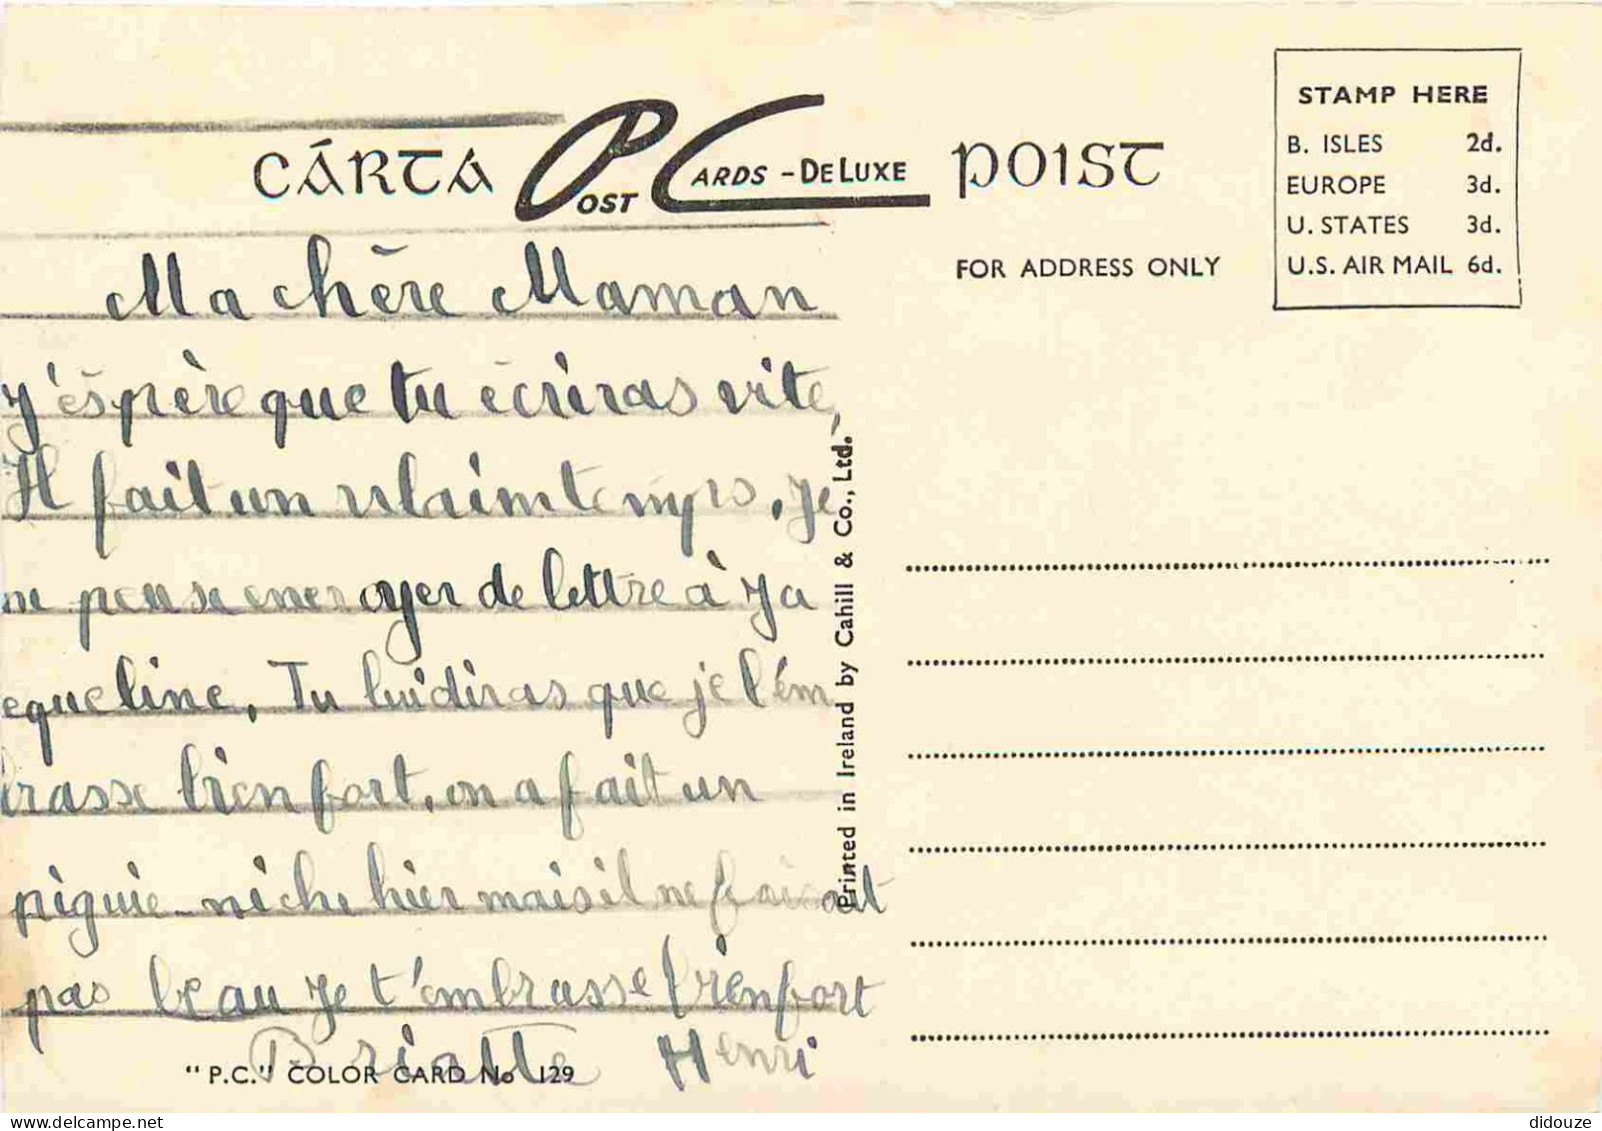 CÁRTA POST CARDS - DE LUXE POIST
FOR ADDRESS ONLY
STAMP HERE
B. ISLES 2d.
EUROPE 3d.
U. STATES 3d.
U.S. AIR MAIL 6d.
Ma chère Maman
J'éspère que tu écriras vite,
Il fait un vilaim temps, je
ne peuse envoyer de lettre à Ja
equeline, Tu lui diras que je l'em
brasse bien fort, on a fait un
piquie-niche hier mais il ne faisait
pas beau je t'embrasse bien fort
Henri
"P.C." COLOR CARD No 129
Printed in Ireland by Cahill & Co., Ltd.
didouze